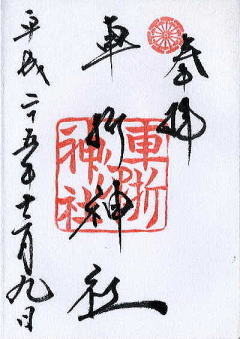 奉拝
車折神社
車折神社
平成二十五年十一月九日